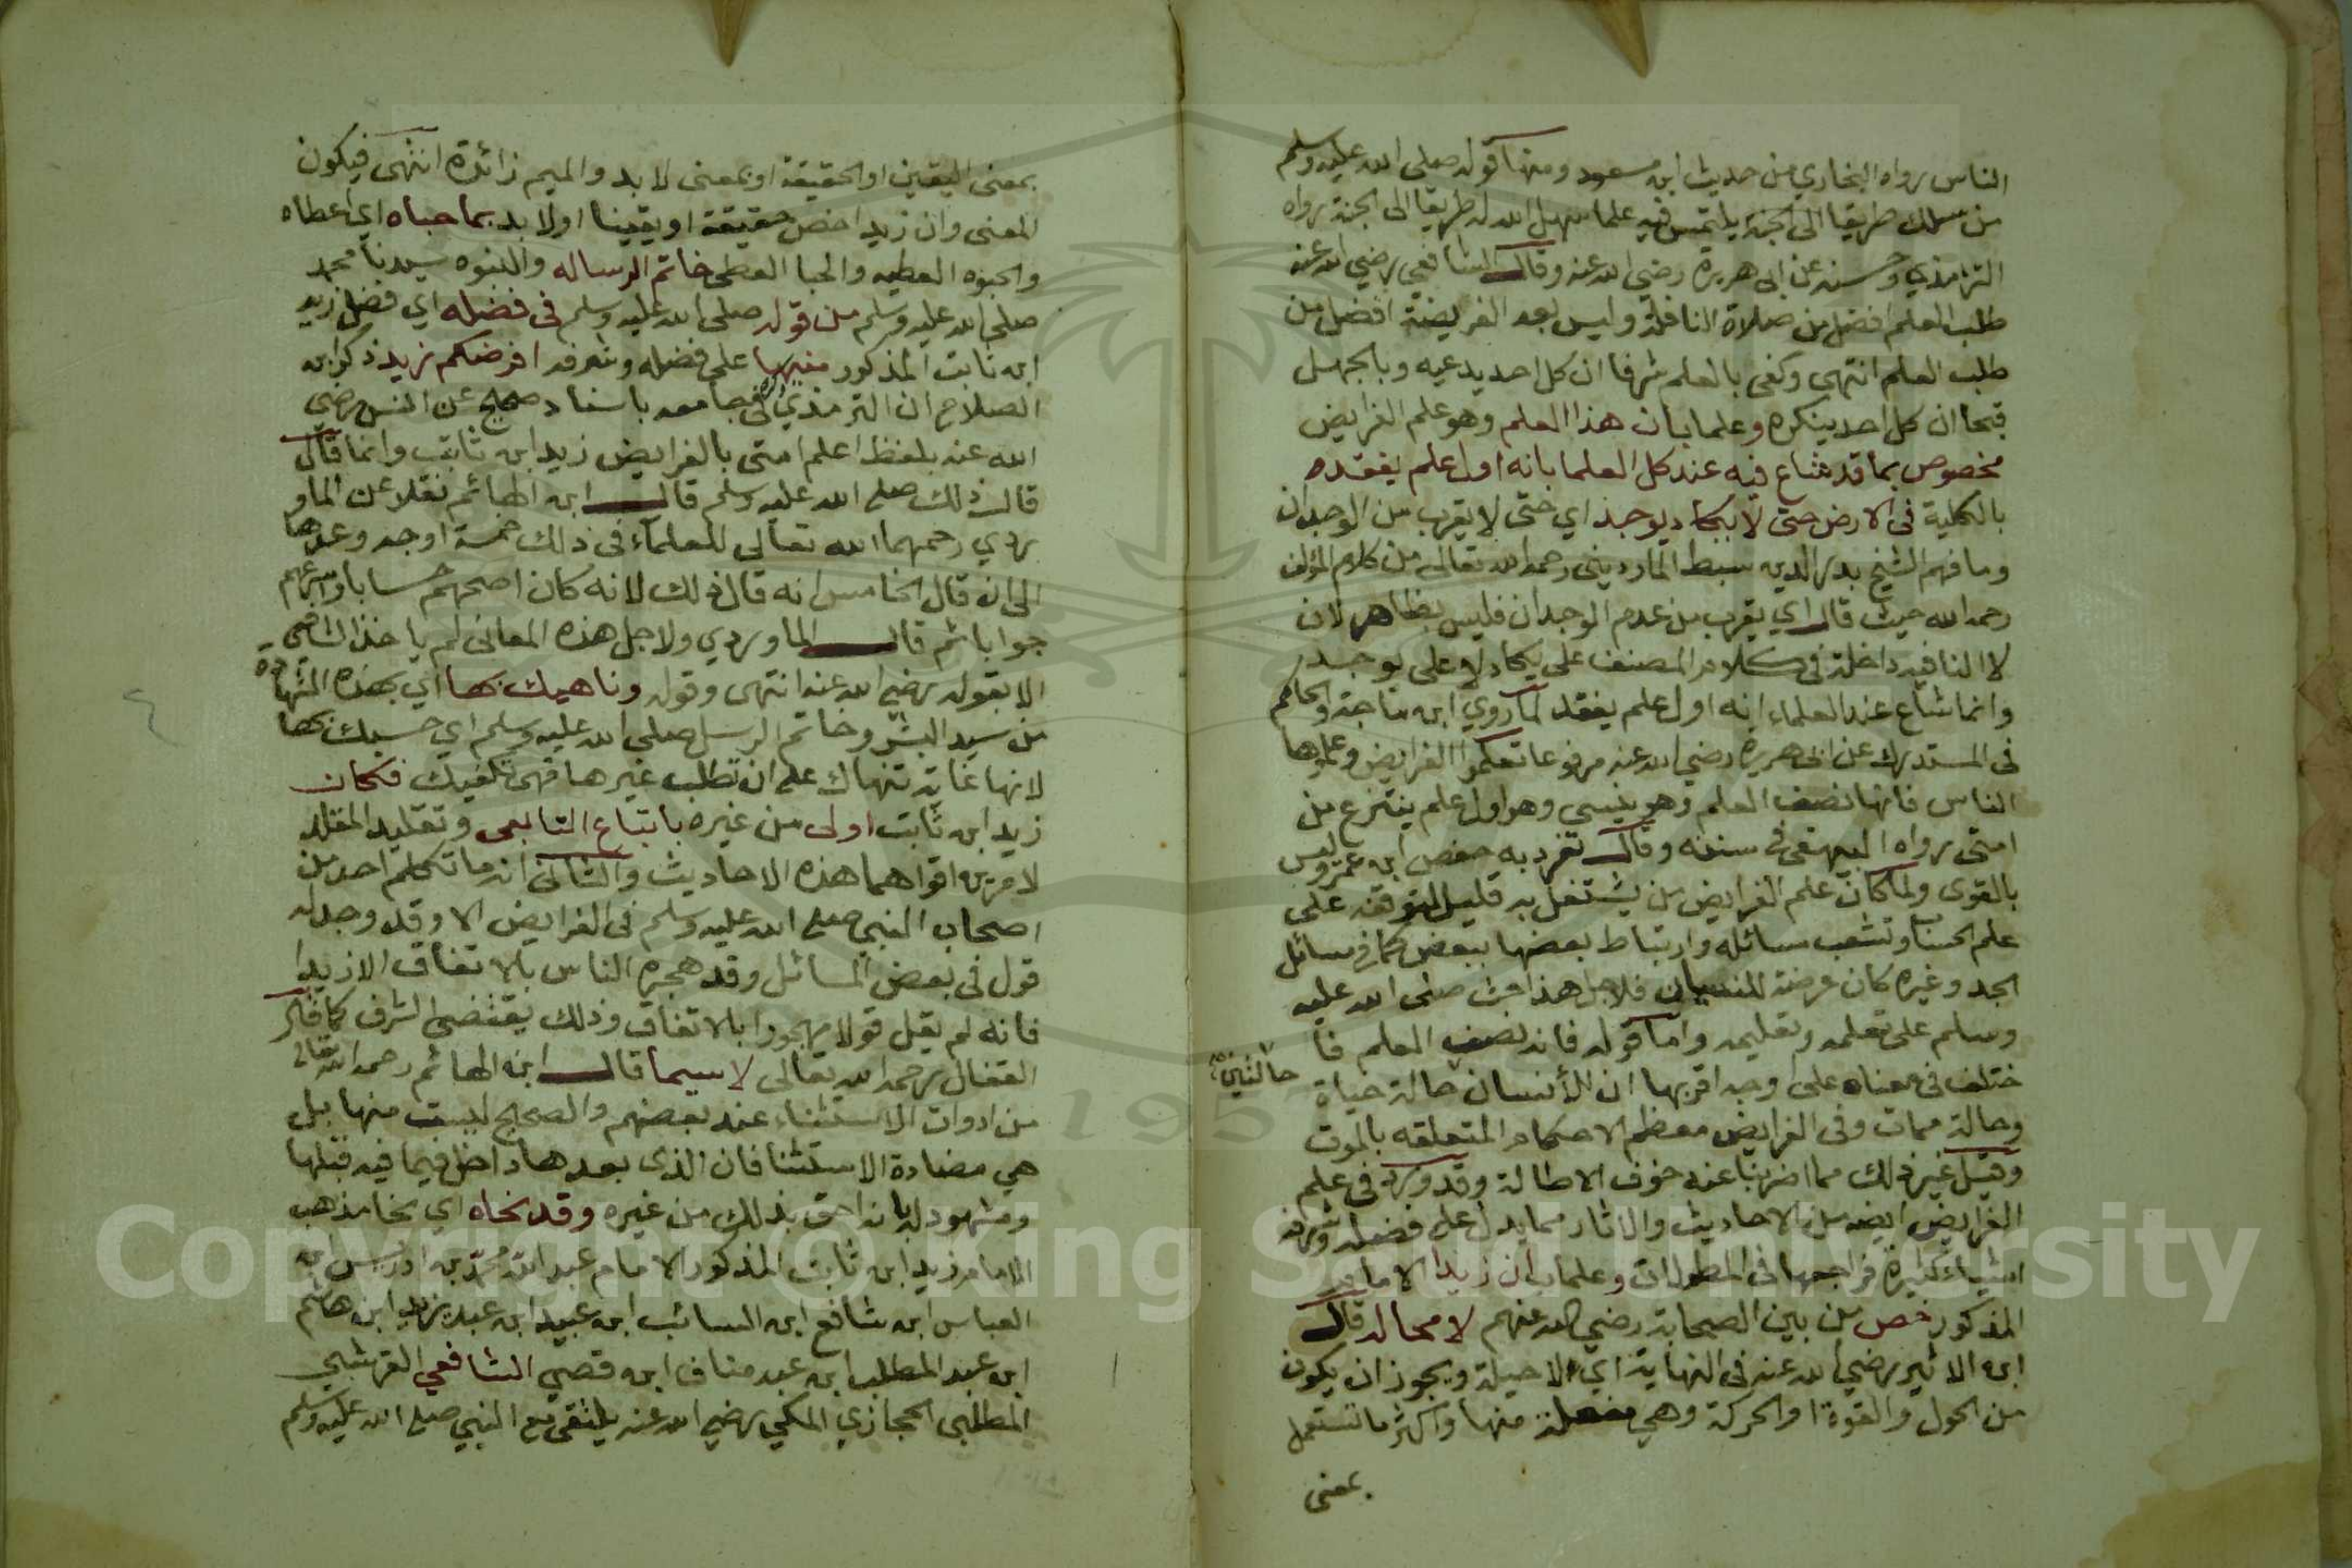 الناس رواه البخاري من حديث ابن مسعود ومنها قوله صلى الله عليه وسلم
من سلك طريقا الى الجنة يلتمس فيه علما سهل الله له طريقا الى الجنة رواه
الترمذي وحسنه عن ابى هريرة رضي الله عنه وقال الشافعي رضي الله عنه
طلب العلم افضل من صلاة النافلة وليس بعد الفريضة افضل من
طلب العلم انتهى وكفى بالعلم شرفا ان كل احد يدعيه وبالجهل
قبحا ان كل احد ينكره وعلما بان هذا العلم وهو علم الفرايض
مخصوص بما قد شاع فيه عند كل العلما بانه اول علم يفقده
بالكلية فى الارض حتى لا يكاد يوجد اي حتى لا يقرب من الوجدان
وما فهم الشيخ بدر الدين سبط الماردينى رحمه الله تعالى من كلام المؤلف
رحمه الله حيث قال اي يقرب من عدم الوجدان فليس بظاهر لان
لا النافيه داخلة فى كلام المصنف على يكاد لا على يوجد
وانما شاع عند العلماء انه اول علم يفقد لما روي ابن ماجة والحاكم
فى المستدرك عن ابى هريرة رضي الله عنه مرفوعا تعلموا الفرايض وعلموها
الناس فانها نصف العلم وهو ينسى وهو اول علم ينتزع من
امتى رواه البيهقى فى سننه وقال تفرد به حفص ابن عمر وليس
بالقوى ولما كان علم الفرايض من يشتغل به قليل لتوقفه على
علم الحساب وتشعب مسائله وارتباط بعضها ببعض كما فى مسائل
الجد وغيره كان عرضة للنسيان فلاجل هذا حث صلى الله عليه
وسلم على تعلمه وتعليمه واما قوله فانه نصف العلم فا
ختلف فى معناه على اوجه اقربها ان للأنسان حالة حياة
حالتين
وحالة ممات وفى الفرايض معظم الاحكام المتعلقه بالموت
وقيل غير ذلك مما اضربنا عنه خوف الاطالة وقد ورد فى علم
الفرايض ايضا من الاحاديث والاثار مما يدل على فضله وشرفه
اشياء كثيرة فراجعها فى المطولات وعلما بان زيدا الامام
المذكور خص من بين الصحابة رضي الله عنهم لا محالة قال
ابن الاثير رضي الله عنه فى النهاية اي لا حيلة ويجوز ان يكون
من الحول والقوة او الحركة وهي مفعلة منها واكثر ما تستعمل
بمعنى
بمعنى اليقين او الحقيقة او بمعنى لا بد والميم زائدة انتهى فيكون
المعنى وان زيدا خص حقيقة او يقينا او لا بد بما حباه اي اعطاه
والحبوه العطيه والحبا العطى خاتم الرساله والنبوه سيدنا محمد
صلى الله عليه وسلم من قوله صلى الله عليه وسلم فى فضله اي فضل زيد
ابن ثابت المذكور منبها على فضله وشرفه افرضكم زيد ذكر ابن
الصلاح ان الترمذي فى جامعه باسناد صحيح عن انس رضي
الله عنه بلفظ اعلم امتى بالفرايض زيد ابن ثابت وانما قال
قال ذلك صلى الله عليه وسلم قال ابن الهائم نقلا عن الماو
ردي رحمهما الله تعالى للعلماء فى ذلك خمسة اوجه وعدها
الى ان قال الخامس انه قال ذلك لانه كان اصحهم حسابا واسرعهم
جوابا ثم قال الماوردي ولاجل هذه المعانى لم ياخذ الشافعى
الا بقوله رضي الله عنه انتهى وقوله وناهيك بها اي بهذه الشهادة
من سيد البشر وخاتم الرسل صلى الله عليه وسلم اي حسبك بها
لانها غاية تنهاك على ان تطلب غيرها فهى تكفيك فكان
زيد ابن ثابت اولى من غيره باتباع التابعى وتقليد المقلد
لامرين اقواهما هذه الاحاديث والثانى انه ما تكلم احد من
اصحاب النبى صلى الله عليه وسلم فى الفرايض الا وقد وجد له
قول فى بعض المسائل وقد هجره الناس بالاتفاق الا زيدا
فانه لم يقل قولا مهجورا بالاتفاق وذلك يقتضى الشرف كما قال
القفال رحمه الله تعالى لا سيما قال ابن الهائم رحمه الله تعالى
من ادوات الاستثناء عند بعضهم والصحيح ليست منها بل
هي مضادة الاستثنا فان الذى بعدها داخل فيما فيه قبلها
ومشهود له بانه احق بذلك من غيره وقد نحاه اي نحا مذهب
الامام زيد ابن ثابت المذكور الامام عبد الله محمد بن ادريس ابن
العباس ابن شافع ابن السائب ابن عبيد ابن عبد يزيد ابن هاشم
ابن عبد المطلب ابن عبد مناف ابن قصي الشافعي القرشي
المطلبى الحجازي المكي رضي الله عنه يلتقى مع النبي صلى الله عليه وسلم
Copyright © King Saud University
195